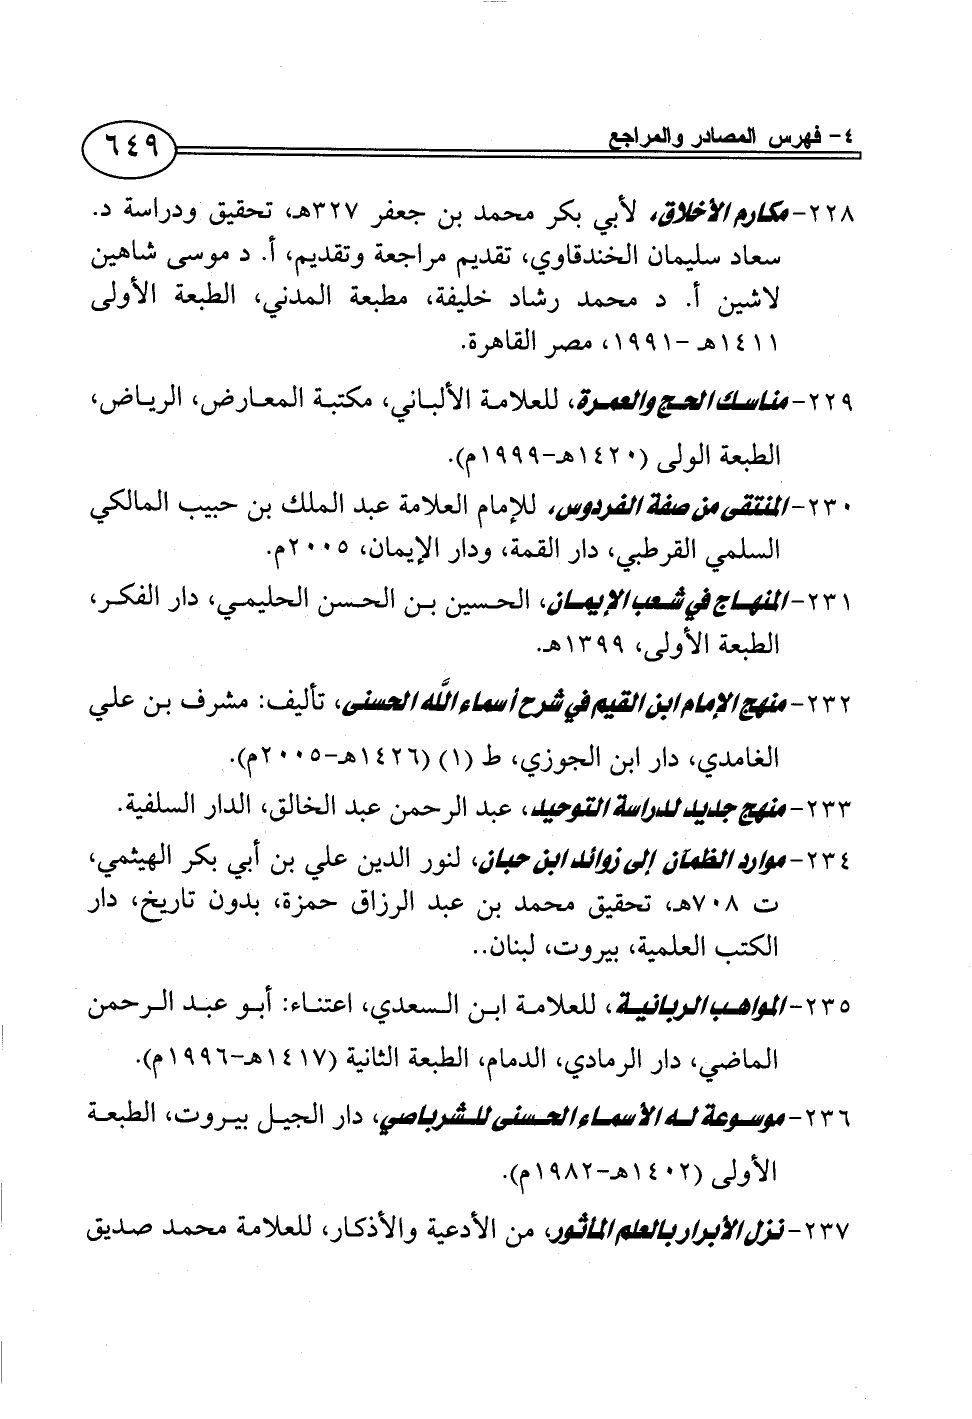 ٤- فهرس المصادر والمراجع
٦٤٩
٢٢٨- مكارم الأخلاق، لأبي بكر محمد بن جعفر ٣٢٧هـ، تحقيق ودراسة د.
سعاد سليمان الخندقاوي، تقديم مراجعة وتقديم، أ. د موسى شاهين
لاشين أ. د محمد رشاد خليفة، مطبعة المدني، الطبعة الأولى
١٤١١هـ -١٩٩١، مصر القاهرة.
٢٢٩- مناسك الحج والعمرة، للعلامة الألباني، مكتبة المعارض، الرياض،
الطبعة الولى (١٤٢٠هـ-١٩٩٩م).
٢٣٠- المنتقى من صفة الفردوس، للإمام العلامة عبد الملك بن حبيب المالكي
السلمي القرطبي، دار القمة، ودار الإيمان، ٢٠٠٥م.
٢٣١- المنهاج في شعب الإيمان، الحسين بن الحسن الحليمي، دار الفكر،
الطبعة الأولى، ١٣٩٩هـ.
٢٣٢- منهج الإمام ابن القيم في شرح أسماء الله الحسنى، تأليف: مشرف بن علي
الغامدي، دار ابن الجوزي، ط (١) (١٤٢٦هـ-٢٠٠٥م).
٢٣٣- منهج جديد لدراسة التوحيد، عبد الرحمن عبد الخالق، الدار السلفية.
٢٣٤- موارد الظمآن إلى زوائد ابن حبان، لنور الدين علي بن أبي بكر الهيثمي،
ت ٧٠٨هـ، تحقيق محمد بن عبد الرزاق حمزة، بدون تاريخ، دار
الكتب العلمية، بيروت، لبنان..
٢٣٥- المواهب الربانية، للعلامة ابن السعدي، اعتناء: أبو عبد الرحمن
الماضي، دار الرمادي، الدمام، الطبعة الثانية (١٤١٧هـ-١٩٩٦م).
٢٣٦- موسوعة له الأسماء الحسنى للشرباصي، دار الجيل بيروت، الطبعة
الأولى (١٤٠٢هـ-١٩٨٢م).
٢٣٧- نزل الأبرار بالعلم المأثور، من الأدعية والأذكار، للعلامة محمد صديق